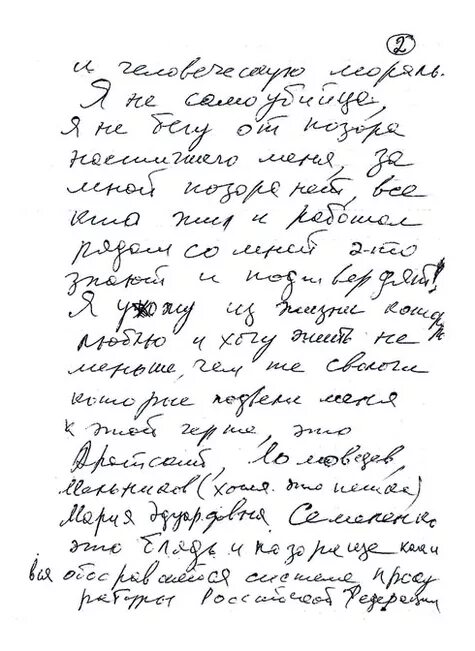 2
и человеческую мораль.
Я не самоубийца,
я не бегу от позора
настигшего меня, за
мной позора нет, все
кто жил и работал
рядом со мной это
знают и подтвердят!
Я ухожу из жизни которую
люблю и хочу жить не
меньше, чем те сволочи
которые подвели меня
к этой черте, это
Мельников (хотя это пешка)
Мария Эдуардовна Семененко
это блядь и позорище как и
вся обосравшейся система проку
ратуры Российской Федерации